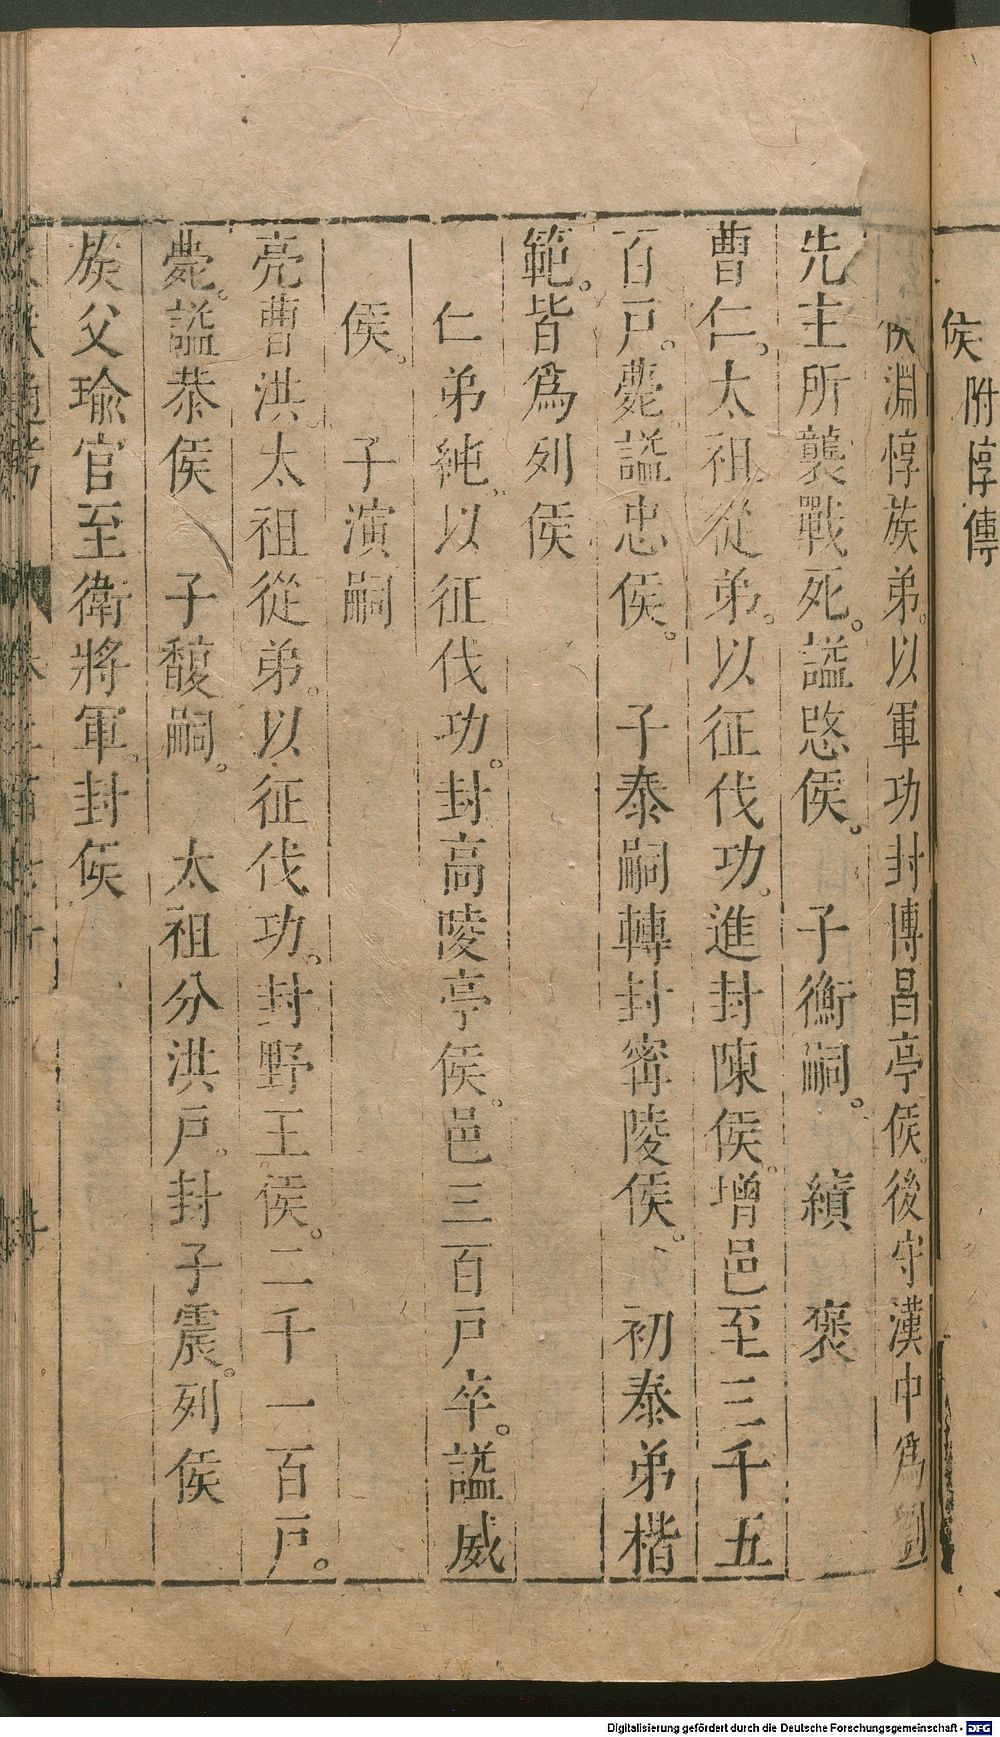 侯 附惇傳
侯淵惇族弟。以軍功封博昌亭侯。後守漢中爲劉
先主所襲戰死。謚愍侯。 子衡嗣。 績 褒
曹仁。太祖從弟。以征伐功。進封陳侯。增邑至三千五
百戸。薨謚忠侯。 子泰嗣轉封甯陵侯。 初泰弟楷
範。皆爲列侯
仁弟純。以征伐功。封高陵亭侯。邑三百戸卒。謚威
侯。 子演嗣
亮曹洪。太祖從弟。以征伐功。封野王侯。二千一百戸。
薨。謚恭侯 子馥嗣。 太祖分洪戸。封子震。列侯
族父瑜官至衛將軍。封侯
Digitalisierung gefördert durch die Deutsche Forschungsgemeinschaft - DFG